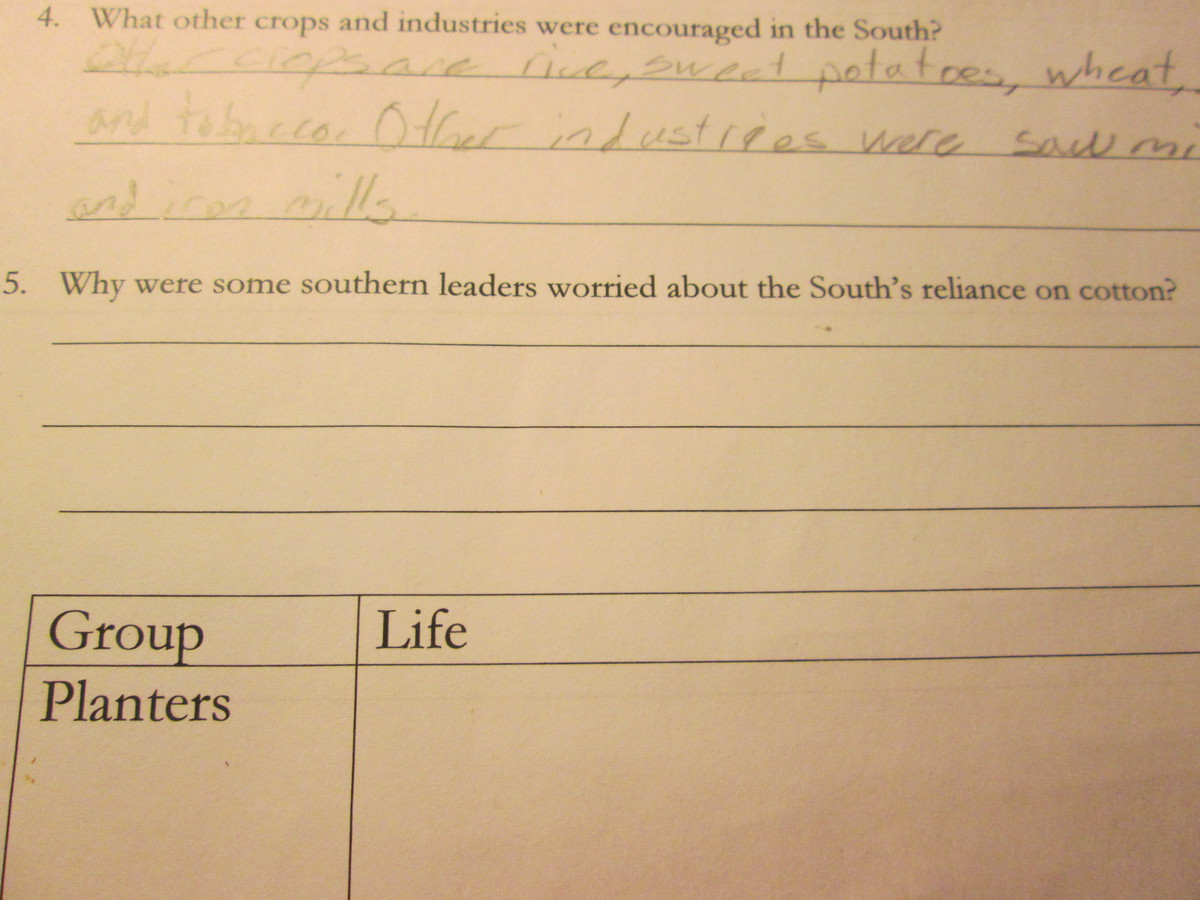 4. What other crops and industries were encouraged in the South?
Other crops are rice, sweet potatoes, wheat,
and tobacco. Other industries were saw mi
and iron mills.
5. Why were some southern leaders worried about the South's reliance on cotton?
Group Life
Planters